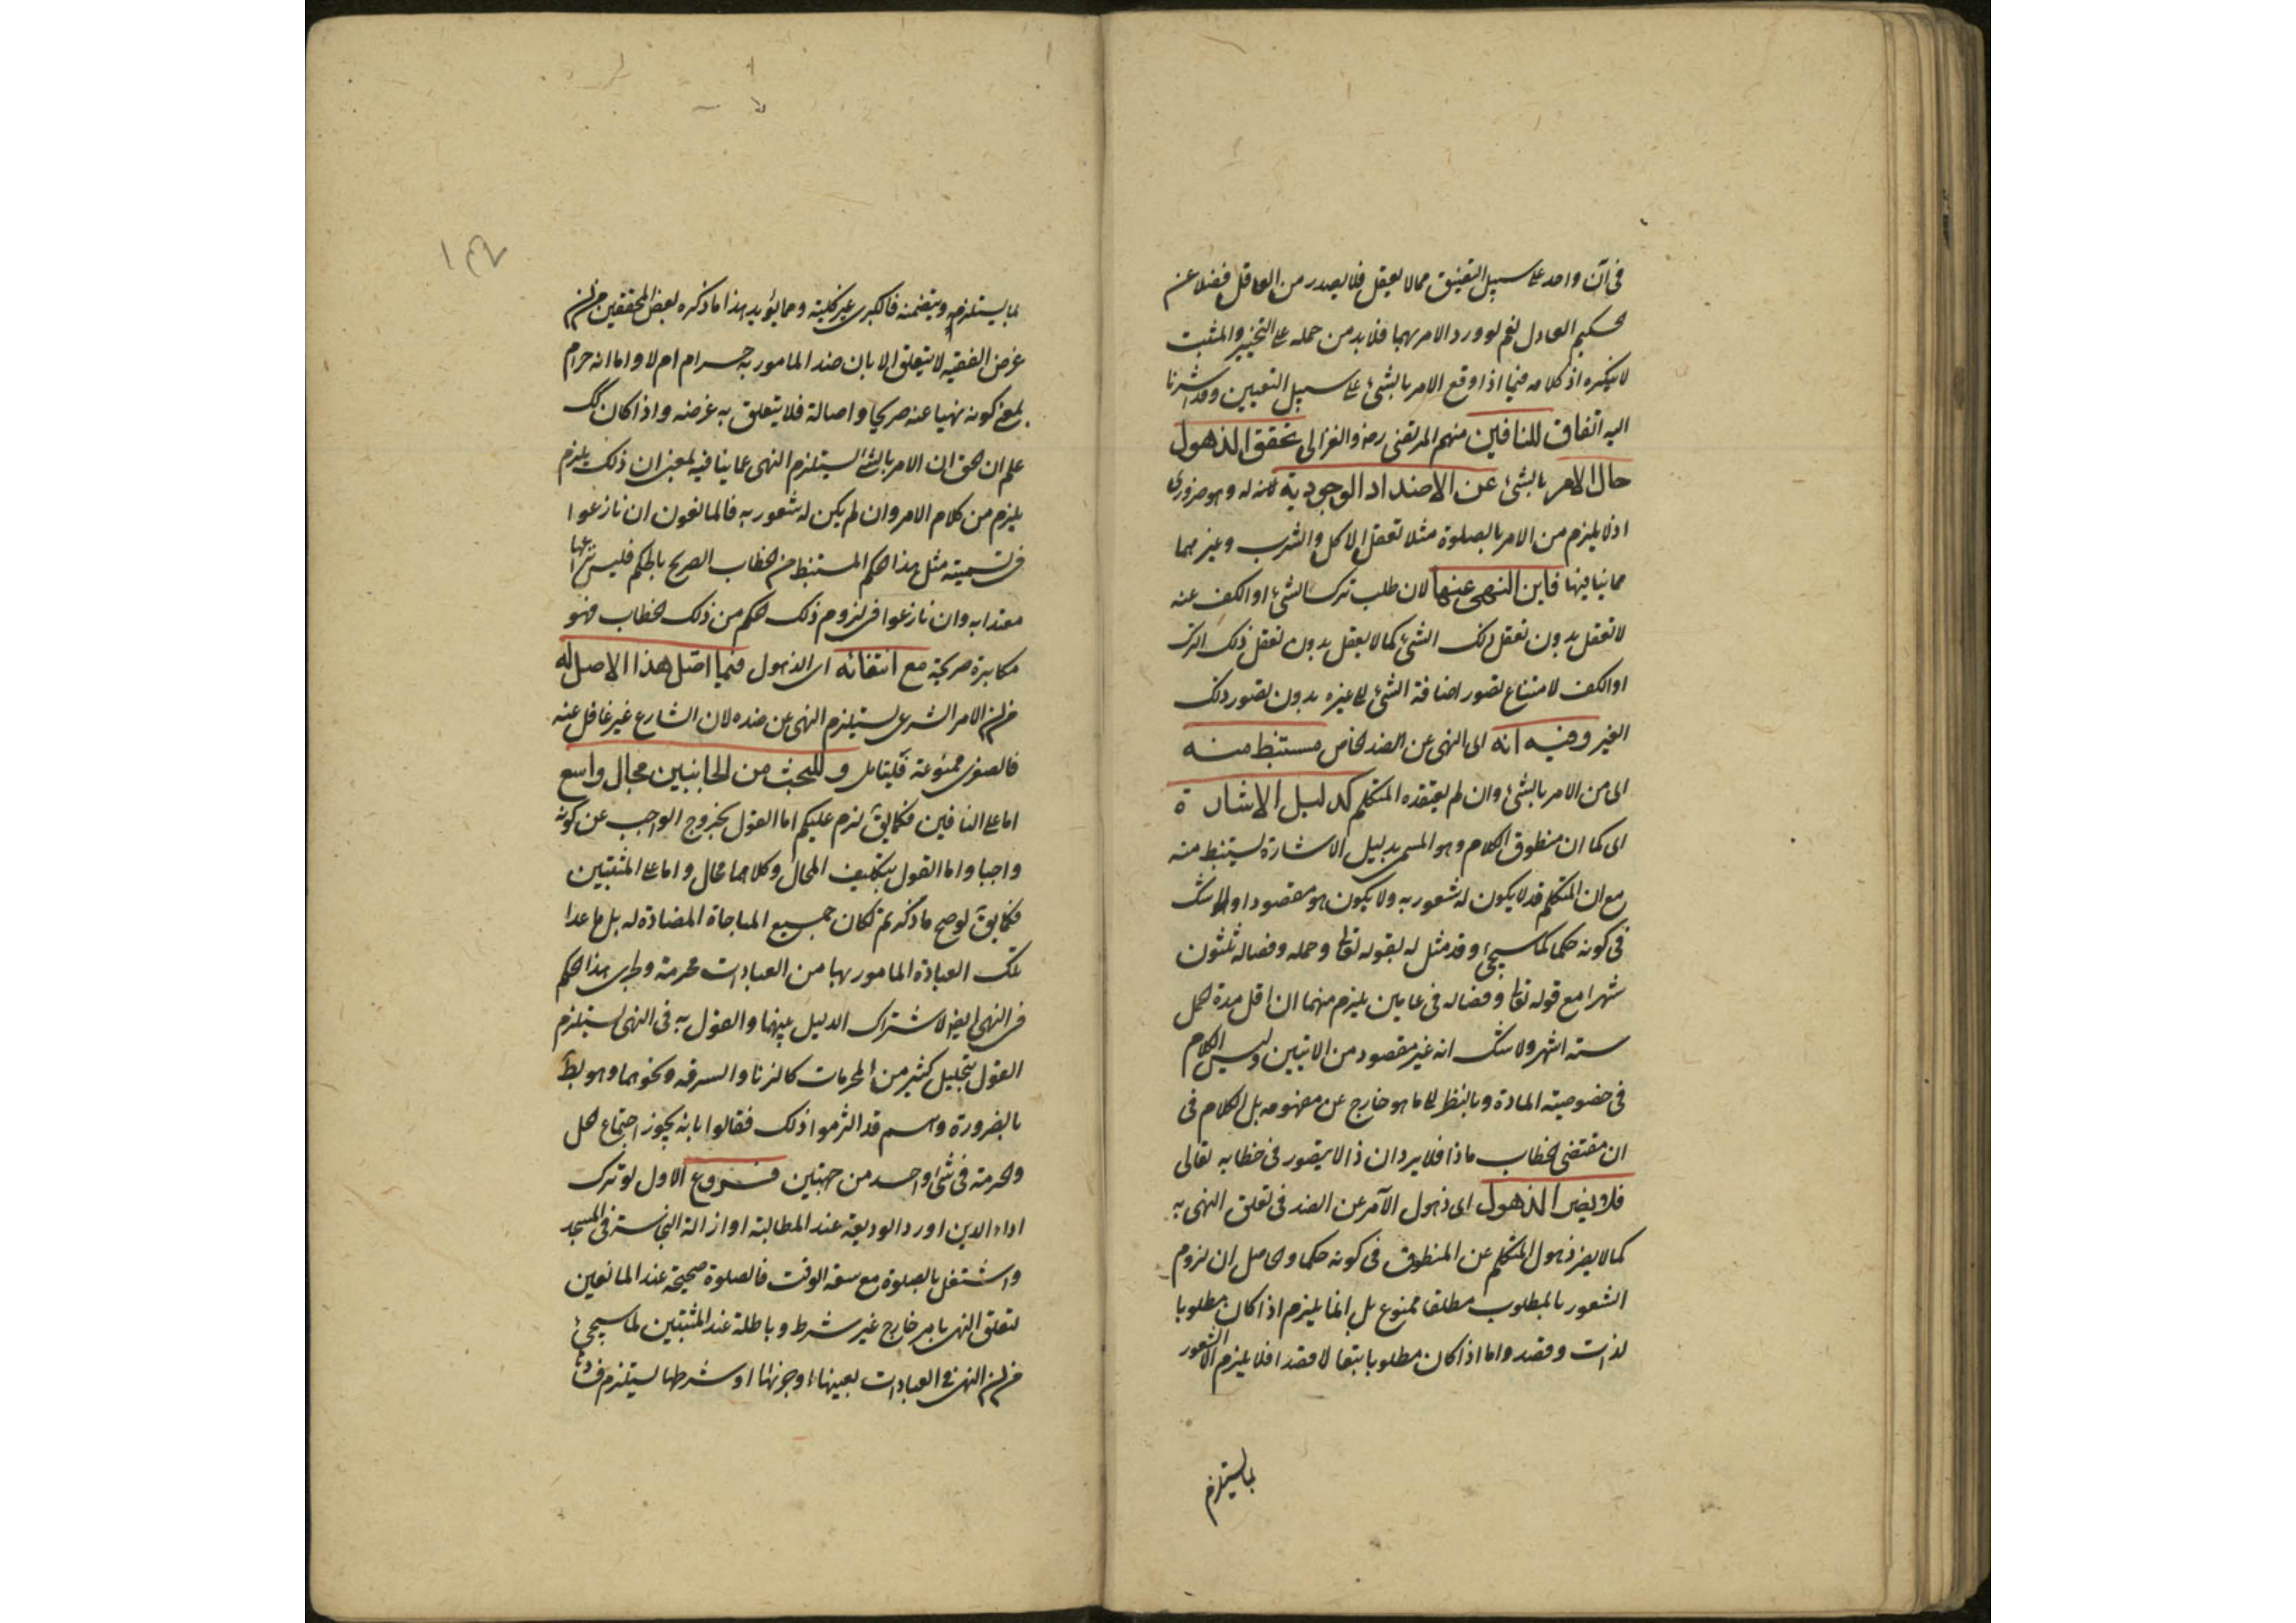 في آن واحد على سبيل التعيين مما لا يعقل فلا يصدر من العاقل فضلا عن
الحكيم العادل نعم لو ورد الامر بهما فلا بد من حمله على التخيير والمثبت
لا ينكره اذ كلامه فيما اذا وقع الامر بالشئ على سبيل التعيين وقد اشرنا
اليه اتفاق للنافين منهم المرتضى رض والغزالى تحقق الذهول
حال الامر بالشئ عن الاضداد الوجودية له وهو ضرورى
اذ لا يلزم من الامر بالصلوة مثلا تعقل الاكل والشرب وغيرهما
مما ينافيها فاين النهى عنها لان طلب ترك الشئ او الكف عنه
لا تعقل بدون تعقل ذلك الشئ كما لا يعقل بدون تعقل ذلك الترك
او الكف لامتناع تصور اضافة الشئ الى غيره بدون تصور ذلك
الغير وفيه انه اى النهى عن الضد الخاص مستنبط منه
اى من الامر بالشئ وان لم يعتقده المتكلم كدليل الاشارة
اى كما ان منطوق الكلام وهو المسمى بدليل الاشارة يستنبط منه
مع ان المتكلم قد لا يكون له شعور به ولا يكون هو مقصودا ولا شك
في كونه حكما كما سيجئ وقد مثل له بقوله تعالى وحمله وفصاله ثلثون
شهرا مع قوله تعالى وفصاله في عامين يلزم منهما ان اقل مدة الحمل
ستة اشهر ولا شك انه غير مقصود من الايتين وليس الكلام
في خصوصية المادة وبالنظر الى ما هو خارج عن مفهومه بل الكلام في
ان مقتضى الخطاب ماذا فلا يرد ان ذا لا يتصور في خطابه تعالى
فلا يضر الذهول اى ذهول الآمر عن الضد في تعلق النهى به
كما لا يضر ذهول المتكلم عن المنطوق في كونه حكما والحاصل ان لزوم
الشعور بالمطلوب مطلقا ممنوع بل انما يلزم اذا كان مطلوبا
لذاته وقصد واما اذا كان مطلوبا تبعا لا قصدا فلا يلزم الا الشعور
بما يستلزم
١٤٢
بما يستلزمه ويتضمنه فالكبرى غير كلية ومما يؤيد هذا ما ذكره بعض المحققين من ان
غرض الفقيه لا يتعلق الا بان ضد المامور به حرام ام لا واما انه حرام
بمعنى كونه نهيا عنه صريحا واصالة فلا يتعلق به غرضه واذا كان كك
علم ان الحق ان الامر بالشئ يستلزم النهى عما ينافيه بمعنى ان ذلك يلزم
يلزم من كلام الامر وان لم يكن له شعور به فالمانعون ان نازعوا
في تسمية مثل هذا الحكم المستنبط من الخطاب الصريح بالحكم فليس نزاعا
معتدا به وان نازعوا في لزوم ذلك الحكم من ذلك الخطاب فهو
مكابرة صريحة مع انتفائه اى الذهول فيما اصل هذا الاصل له
من ان الامر الشرعى يستلزم النهى عن ضده لان الشارع غير غافل عنه
فالصغرى ممنوعة فليتامل وللبحث من الجانبين مجال واسع
اما على النافين فكما يق لزم عليكم اما القول بخروج الواجب عن كونه
واجبا واما القول بتكليف المحال وكلاهما محال واما على المثبتين
فكما يق لو صح ما ذكرتم لكان جميع المباحاة المضادة له بل ما عدا
تلك العبادة المامور بها من العبادات محرمة وطرى هذا الحكم
في النهى ايضا لاشتراك الدليل بينهما والقول به في النهى يستلزم
القول بتحليل كثير من المحرمات كالزنا والسرقه ونحوهما وهو بط
بالضرورة وهم قد التزموا ذلك فقالوا بانه يجوز اجتماع الحل
والحرمة في شئ واحد من جهتين فروع الاول لو ترك
اداء الدين او رد الوديعة عند المطالبة او ازالة النجاسة في المسجد
واشتغل بالصلوة مع سعة الوقت فالصلوة صحيحة عند المانعين
لتعلق النهى بامر خارج غير شرط وباطلة عند المثبتين لما سيجئ
من ان النهى في العبادات بعينها او جزئها او شرطها يستلزم فسادها